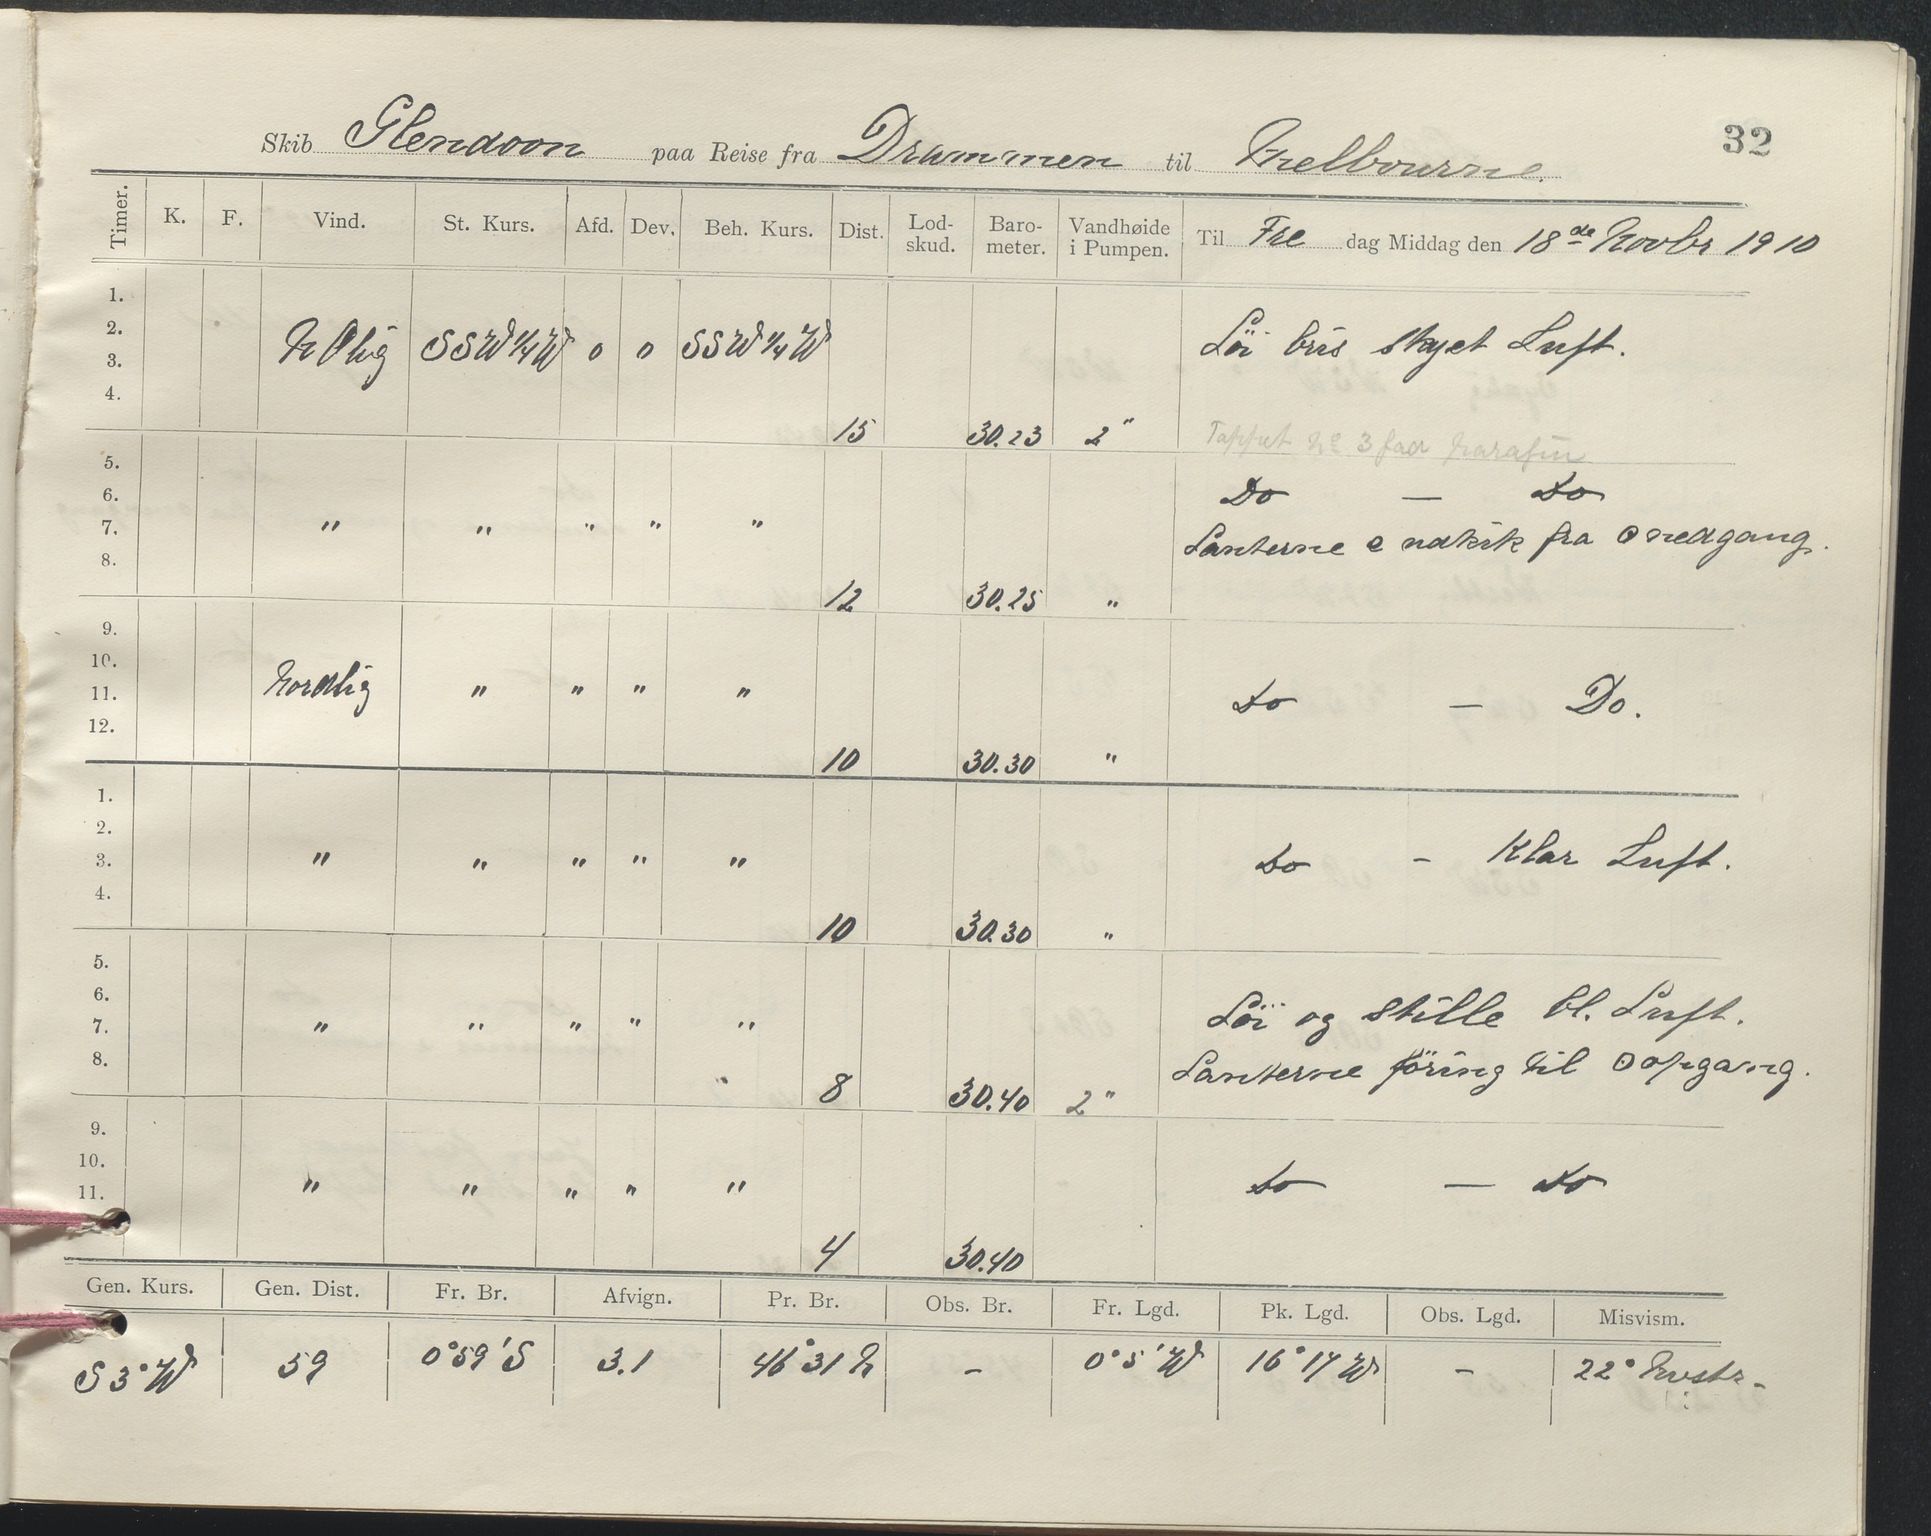 32
Skib Glendoon paa Reise fra Drammen til Melbourne.
Timer. K. F. Vind. St. Kurs. Afd. Dev. Beh. Kurs. Dist. Lod-skud. Baro-meter. Vandhøide i Pumpen. Til Fre dag Middag den 18de Novbr 1910
1.
2. NOlig SSW¼W 0 0 SSW¼W Löi bris skyet Luft.
3.
4.
15 30.23 2" Tappet No 3 fad Parafin
5.
6. Do — Do
7. " " " " " Lanterne o udkik fra ⊙ nedgang.
8.
12 30.25 "
9.
10.
11. Nordlig " " " " Do — Do.
12.
10 30.30 "
1.
2.
3. " " " " " Do - Klar Luft.
4.
10 30.30 "
5.
6. Löi og stille bl. Luft.
7. " " " " "
8. Lanterne föring til ⊙ opgang.
8 30.40 2"
9.
10.
11. " " " " " Do — Do
4 30.40
Gen. Kurs. Gen. Dist. Fr. Br. Afvign. Pr. Br. Obs. Br. Fr. Lgd. Pk. Lgd. Obs. Lgd. Misvism.
S 3° W 59 0°59'S 3.1 46°31 N - 0°5'W 16°17 W - 22°